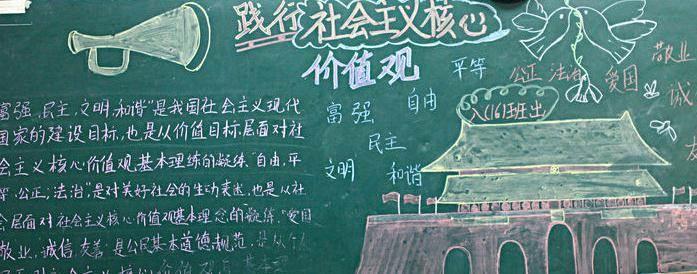 践行社会主义核心
价值观
富强
自由
平等
公正
法治
爱国
敬业
诚
民主
文明
和谐
八(16)班出
富强,民主,文明,和谐"是我国社会主义现代
国家的建设目标,也是从价值目标层面对社
会主义核心价值观基本理练的凝练."自由,平
等,公正,法治"是对美好社会的生动表述,也是从社
会层面对社会主义核心价值观基本理念的凝练,"爱国
敬业,诚信,友善"是公民基本道德规范,是从个人